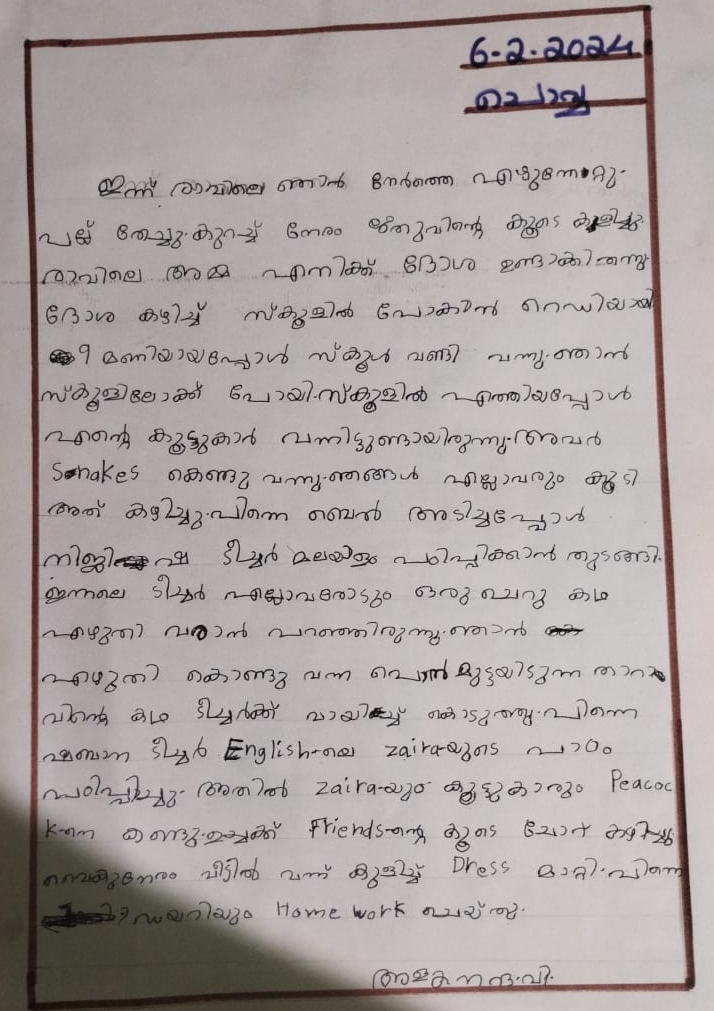 6.2.2024
ചൊവ്വ
ഇന്ന് രാവിലെ ഞാൻ നേർത്തെ എഴുന്നേറ്റു.
പല്ല് തേച്ചു. കുറച്ച് നേരം ഋതുവിന്റെ കൂടെ കളിച്ചു.
രാവിലെ അമ്മ എനിക്ക് ദോശ ഉണ്ടാക്കി തന്നു
ദോശ കഴിച്ച് സ്കൂളിൽ പോകാൻ റെഡിയായി
9 മണിയായപ്പോൾ സ്കൂൾ വണ്ടി വന്നു. ഞാൻ
സ്കൂളിലോക്ക് പോയി. സ്കൂളിൽ എത്തിയപ്പോൾ
എന്റെ കൂട്ടുകാർ വന്നിട്ടുണ്ടായിരുന്നു. അവർ
Snakes കൊണ്ടു വന്നു. ഞങ്ങൾ എല്ലാവരും കൂടി
അത് കഴിച്ചു. പിന്നെ ബെൽ അടിച്ചപ്പോൾ
നിജിഷ ടീച്ചർ മലയാളം പഠിപ്പിക്കാൻ തുടങ്ങി.
ഇന്നലെ ടീച്ചർ എല്ലാവരോടും ഒരു ചെറു കഥ
എഴുതി വരാൻ പറഞ്ഞിരുന്നു. ഞാൻ
എഴുതി കൊണ്ടു വന്ന പൊൻ മുട്ടയിടുന്ന താറാ
വിന്റെ കഥ ടീച്ചർക്ക് വായിച്ച് കൊടുത്തു. പിന്നെ
ഷബാന ടീച്ചർ English-ലെ zaira-യുടെ പാഠം
പഠിപ്പിച്ചു. അതിൽ zaira-യും കൂട്ടുകാരും Peacoc
k-നെ കണ്ടു. ഉച്ചക്ക് Friends-ന്റെ കൂടെ ചോറ് കഴിച്ചു.
വൈകുന്നേരം വീട്ടിൽ വന്ന് കുളിച്ച് Dress മാറ്റി. പിന്നെ
ഡയറിയും Home work ചെയ്തു.
അളകനന്ദ. വി.